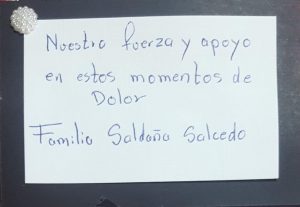 Nuestra fuerza y apoyo
en estos momentos de
Dolor
Familia Saldaña Salcedo